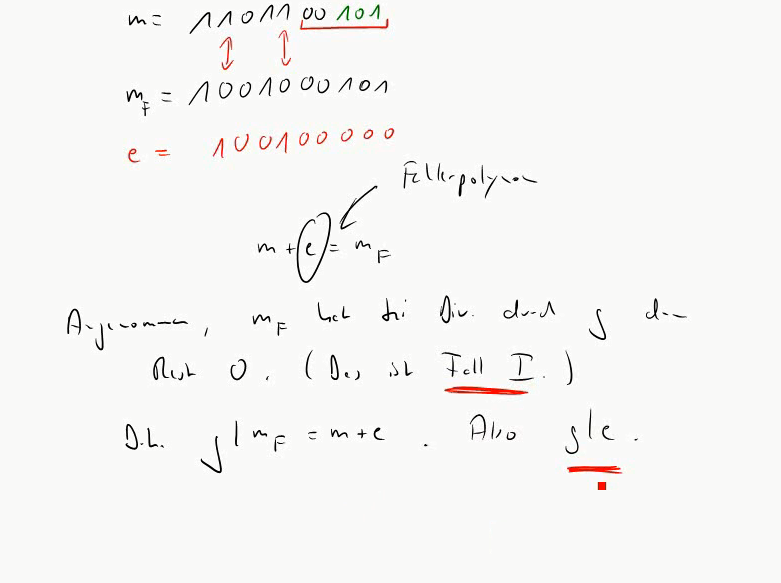 m = 1101100101
m_F = 1001000101
e = 100100000
Fehlerpolynom
m + e = m_F
Angenommen, m_F hat bei Div. durch g den
Rest 0. (Das ist Fall I.)
D.h. g | m_F = m + e. Also g | e.